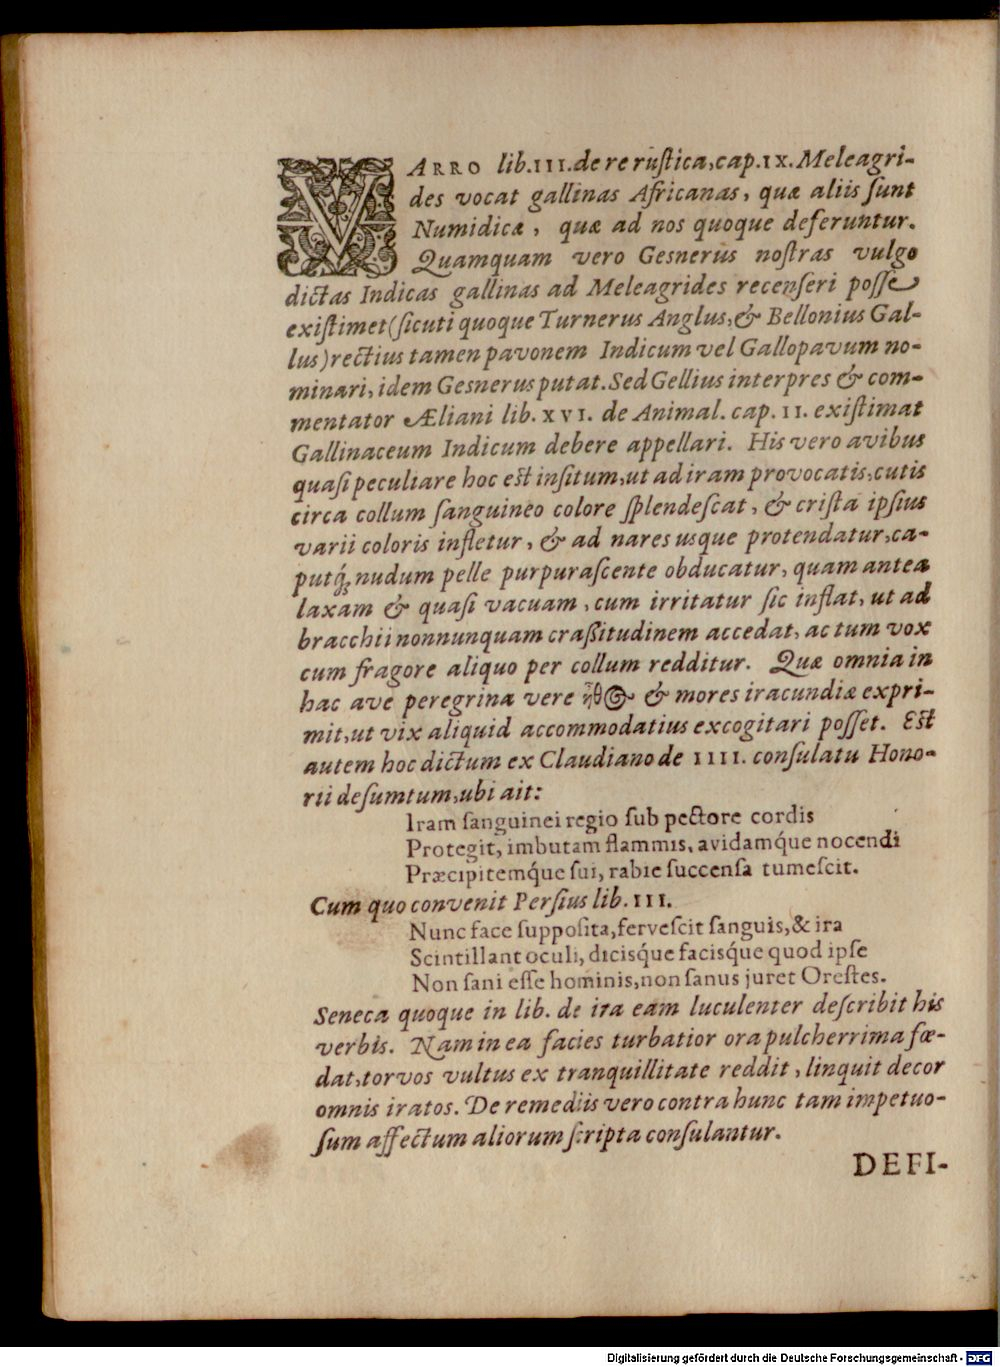 VARRO lib. III. de re rustica, cap. IX. Meleagri-
des vocat gallinas Africanas, quæ aliis sunt
Numidicæ, quæ ad nos quoque deferuntur.
Quamquam vero Gesnerus nostras vulgo
dictas Indicas gallinas ad Meleagrides recenseri posse
existimet (sicuti quoque Turnerus Anglus, & Bellonius Gal-
lus) rectius tamen pavonem Indicum vel Gallopavum no-
minari, idem Gesnerus putat. Sed Gellius interpres & com-
mentator Æliani lib. XVI. de Animal. cap. II. existimat
Gallinaceum Indicum debere appellari. His vero avibus
quasi peculiare hoc est insitum, ut ad iram provocatis, cutis
circa collum sanguineo colore splendescat, & crista ipsius
varii coloris infletur, & ad nares usque protendatur, ca-
putq́; nudum pelle purpurascente obducatur, quam antea
laxam & quasi vacuam, cum irritatur sic inflat, ut ad
bracchii nonnunquam crassitudinem accedat, ac tum vox
cum fragore aliquo per collum redditur. Quæ omnia in
hac ave peregrina vere & mores iracundiæ expri-
mit, ut vix aliquid accommodatius excogitari posset. Est
autem hoc dictum ex Claudiano de IIII. consulatu Hono-
rii desumtum, ubi ait:
Iram sanguinei regio sub pectore cordis
Protegit, imbutam flammis, avidamq́ue nocendi
Præcipitemq́ue sui, rabie succensa tumescit.
Cum quo convenit Persius lib. III.
Nunc face supposita, fervescit sanguis, & ira
Scintillant oculi, dicisq́ue facisq́ue quod ipse
Non sani esse hominis, non sanus juret Orestes.
Seneca quoque in lib. de ira eam luculenter describit his
verbis. Nam in ea facies turbatior ora pulcherrima fœ-
dat, torvos vultus ex tranquillitate reddit, linquit decor
omnis iratos. De remediis vero contra hunc tam impetuo-
sum affectum aliorum scripta consulantur.
DEFI-
Digitalisierung gefördert durch die Deutsche Forschungsgemeinschaft - DFG